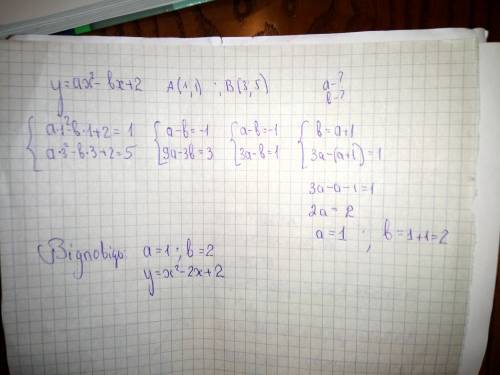 y=ax²-bx+2 A(1;1) ; B(3;5) a-?
b-?
{ a·1²-b·1+2=1 { a-b=-1 { a-b=-1 { b=a+1
a·3²-b·3+2=5 9a-3b=3 3a-b=1 3a-(a+1)=1
3a-a-1=1
2a=2
a=1 ; b=1+1=2
Відповідь: a=1 ; b=2
y=x²-2x+2